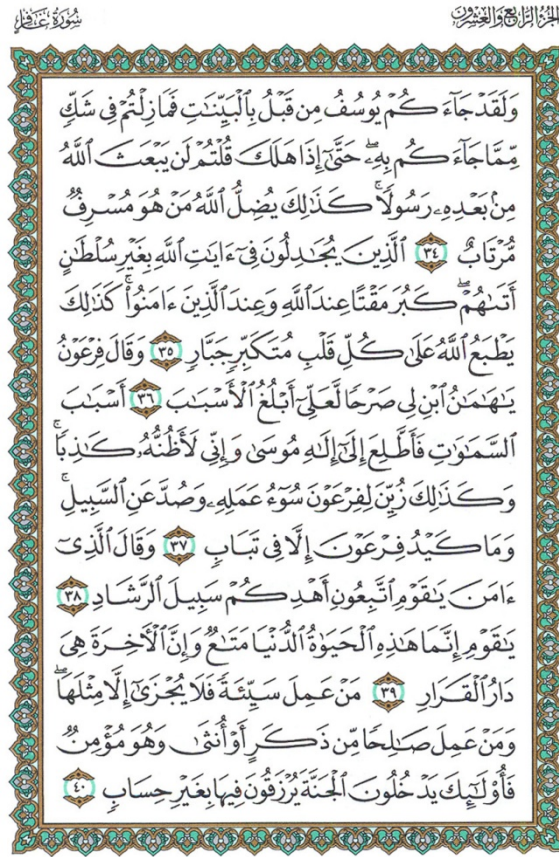 الجزء الرابع والعشرون
سورة غافر
وَلَقَدْ جَآءَكُمْ يُوسُفُ مِن قَبْلُ بِٱلْبَيِّنَٰتِ فَمَا زِلْتُمْ فِى شَكٍّ
مِّمَّا جَآءَكُم بِهِۦۖ حَتَّىٰٓ إِذَا هَلَكَ قُلْتُمْ لَن يَبْعَثَ ٱللَّهُ
مِنۢ بَعْدِهِۦ رَسُولًاۚ كَذَٰلِكَ يُضِلُّ ٱللَّهُ مَنْ هُوَ مُسْرِفٌ
مُّرْتَابٌ ٣٤ ٱلَّذِينَ يُجَٰدِلُونَ فِىٓ ءَايَٰتِ ٱللَّهِ بِغَيْرِ سُلْطَٰنٍ
أَتَىٰهُمْۖ كَبُرَ مَقْتًا عِندَ ٱللَّهِ وَعِندَ ٱلَّذِينَ ءَامَنُوا۟ۚ كَذَٰلِكَ
يَطْبَعُ ٱللَّهُ عَلَىٰ كُلِّ قَلْبِ مُتَكَبِّرٍ جَبَّارٍ ٣٥ وَقَالَ فِرْعَوْنُ
يَٰهَٰمَٰنُ ٱبْنِ لِى صَرْحًا لَّعَلِّىٓ أَبْلُغُ ٱلْأَسْبَٰبَ ٣٦ أَسْبَٰبَ
ٱلسَّمَٰوَٰتِ فَأَطَّلِعَ إِلَىٰٓ إِلَٰهِ مُوسَىٰ وَإِنِّى لَأَظُنُّهُۥ كَٰذِبًاۚ
وَكَذَٰلِكَ زُيِّنَ لِفِرْعَوْنَ سُوٓءُ عَمَلِهِۦ وَصُدَّ عَنِ ٱلسَّبِيلِۚ
وَمَا كَيْدُ فِرْعَوْنَ إِلَّا فِى تَبَابٍ ٣٧ وَقَالَ ٱلَّذِىٓ
ءَامَنَ يَٰقَوْمِ ٱتَّبِعُونِ أَهْدِكُمْ سَبِيلَ ٱلرَّشَادِ ٣٨
يَٰقَوْمِ إِنَّمَا هَٰذِهِ ٱلْحَيَوٰةُ ٱلدُّنْيَا مَتَٰعٌ وَإِنَّ ٱلْءَاخِرَةَ هِىَ
دَارُ ٱلْقَرَارِ ٣٩ مَنْ عَمِلَ سَيِّئَةً فَلَا يُجْزَىٰٓ إِلَّا مِثْلَهَاۖ
وَمَنْ عَمِلَ صَٰلِحًا مِّن ذَكَرٍ أَوْ أُنثَىٰ وَهُوَ مُؤْمِنٌ
فَأُو۟لَٰٓئِكَ يَدْخُلُونَ ٱلْجَنَّةَ يُرْزَقُونَ فِيهَا بِغَيْرِ حِسَابٍ ٤٠